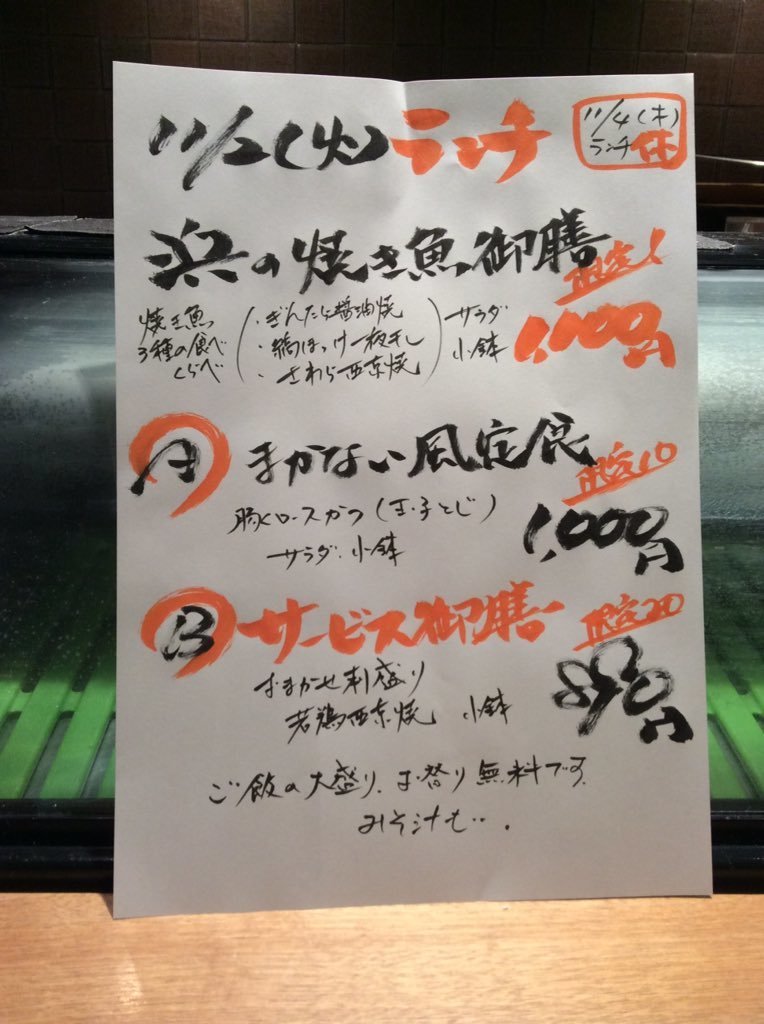 11/2(火)ランチ
11/4(木)
ランチ休
浜の焼き魚御膳
焼き魚
3種の食べ
くらべ
・ぎんだら醤油焼
・縞ほっけ一夜干し
・さわら西京焼
サラダ
小鉢
限定
1,100円
A まかない風定食
限定10
豚ロースかつ(玉子とじ)
サラダ 小鉢
1,000円
B サービス御膳
限定20
おまかせ刺盛り
若鶏西京焼 小鉢
890円
ご飯の大盛り、お替り無料です。
みそ汁も…。